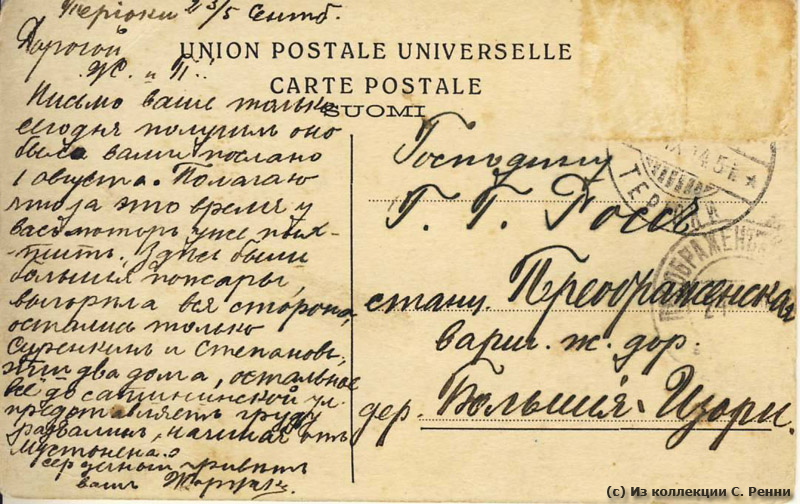 Теріоки 23/5 Сентб.
Дорогой
Ж. и П.!
Письмо ваше только
сегодня получилъ оно
было вами послано
1 августа. Полагаю
что за это время у
васъ моторъ уже пых-
титъ. Здѣсь были
большія пожары,
выгорѣла вся сторона,
остались только
Суренкинъ и Степановъ,
эти два дома, остальное
всё до сапининской ул.
представляетъ груду
развалинъ, начиная отъ
Мустонена.
сердечный привѣтъ
вашъ
UNION POSTALE UNIVERSELLE
CARTE POSTALE
SUOMI
Господину
Г. Г. Россъ
станц. Преображенская
варш. ж. дор.
дер. Большія Изори.
IX 14 5
ТЕРІОКИ
ПРЕОБРАЖЕНСК
(c) Из коллекции С. Ренни